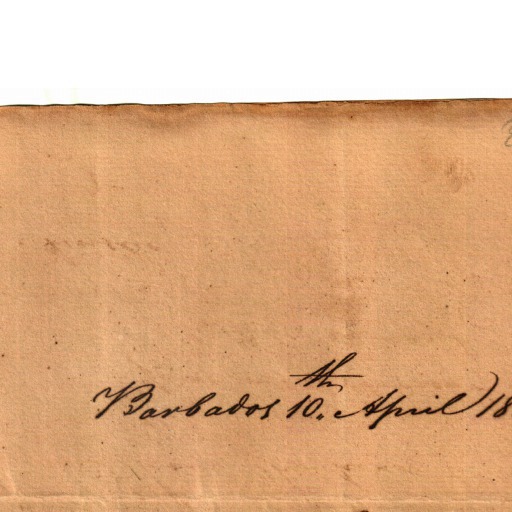 Barbados 10.th April 18